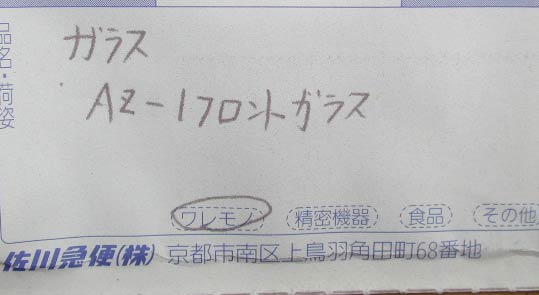 品名・荷姿
ガラス
AZ-1フロントガラス
ワレモノ 精密機器 食品 その他
佐川急便(株) 京都市南区上鳥羽角田町68番地